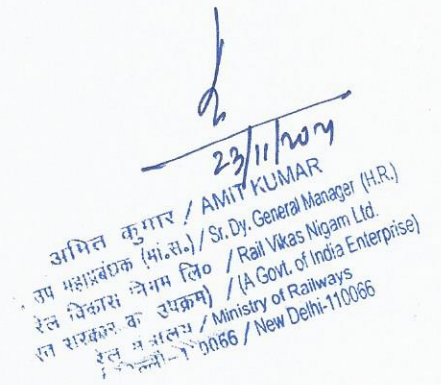 23/11/2021
अमित कुमार / AMIT KUMAR
उप महाप्रबंधक (मां.स.) / Sr. Dy. General Manager (H.R.)
रेल विकास निगम लि० / Rail Vikas Nigam Ltd.
सरकार उपक्रम) / (A Govt. of India Enterprise)
रेल / Ministry of Railways
0066 / New Delhi-110066